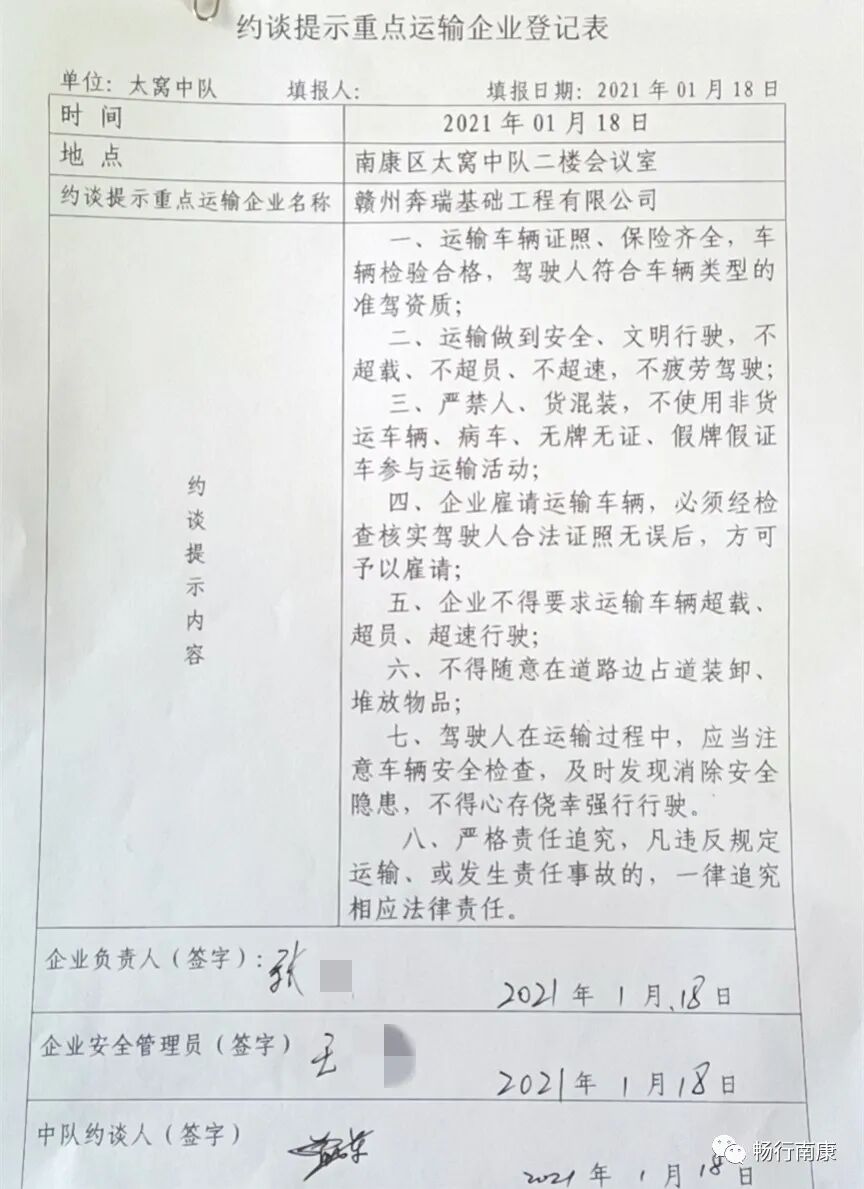 约谈提示重点运输企业登记表
单位：太窝中队 填报人： 填报日期：2021年01月18日
时 间 2021年01月18日
地 点 南康区太窝中队二楼会议室
约谈提示重点运输企业名称 赣州奔瑞基础工程有限公司
约谈提示内容
一、运输车辆证照、保险齐全，车
辆检验合格，驾驶人符合车辆类型的
准驾资质；
二、运输做到安全、文明行驶，不
超载、不超员、不超速，不疲劳驾驶；
三、严禁人、货混装，不使用非货
运车辆、病车、无牌无证、假牌假证
车参与运输活动；
四、企业雇请运输车辆，必须经检
查核实驾驶人合法证照无误后，方可
予以雇请；
五、企业不得要求运输车辆超载、
超员、超速行驶；
六、不得随意在道路边占道装卸、
堆放物品；
七、驾驶人在运输过程中，应当注
意车辆安全检查，及时发现消除安全
隐患，不得心存侥幸强行行驶。
八、严格责任追究，凡违反规定
运输、或发生责任事故的，一律追究
相应法律责任。
企业负责人（签字）：张
2021年1月18日
企业安全管理员（签字） 王
2021年1月18日
中队约谈人（签字）
2021年1月18日
畅行南康